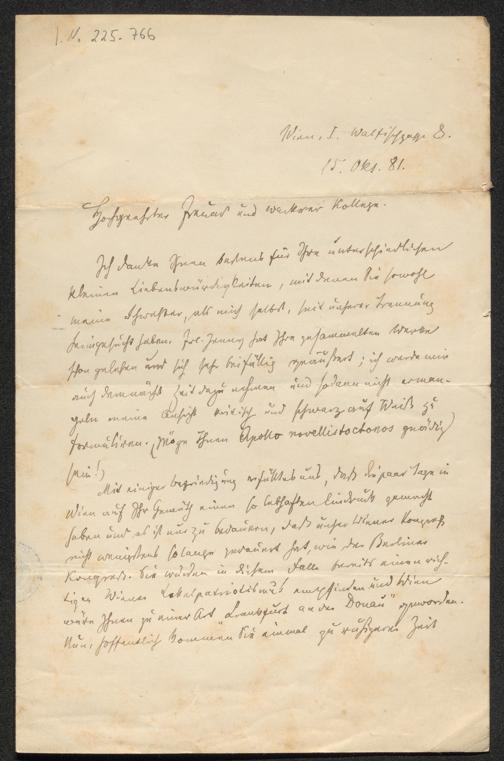 I. N. 225.766
Wien, I. Walfischgasse 8.
15. Okt. 81.
Hochgeehrter Freund und wackrer Kollege.
Ich danke Ihnen bestens für Ihre unterschiedlichen
kleinen Liebenswürdigkeiten, mit denen Sie sowohl
meine Schwester, als mich selbst, seit unserer Trennung
heimgesucht haben. Frl. Jenny hat Ihre gesammelten Werke
schon gelesen und sich sehr beifällig geäußert; ich werde mir
auch demnächst Zeit dazu nehmen und sodann nicht erman-
geln meine Ansicht kritisch und schwarz auf Weiß zu
formuliren. (Möge Ihnen Apollo novellistoctonos gnädig
sein!)
Mit einiger Befriedigung erfüllt es uns, daß die paar Tage in
Wien auf Ihr Gemüth einen so lebhaften Eindruck gemacht
haben und es ist nur zu bedauern, daß unser Wiener Kongreß
nicht wenigstens so lange gedauert hat, wie der Berliner
Kongreß. Sie würden in diesem Falle bereits einen rich-
tigen Wiener Lokalpatriotismus empfinden und Wien
wäre Ihnen zu einer Art „Frankfurt an der Donau" geworden.
Nun, hoffentlich kommen Sie einmal zu ruhigerer Zeit